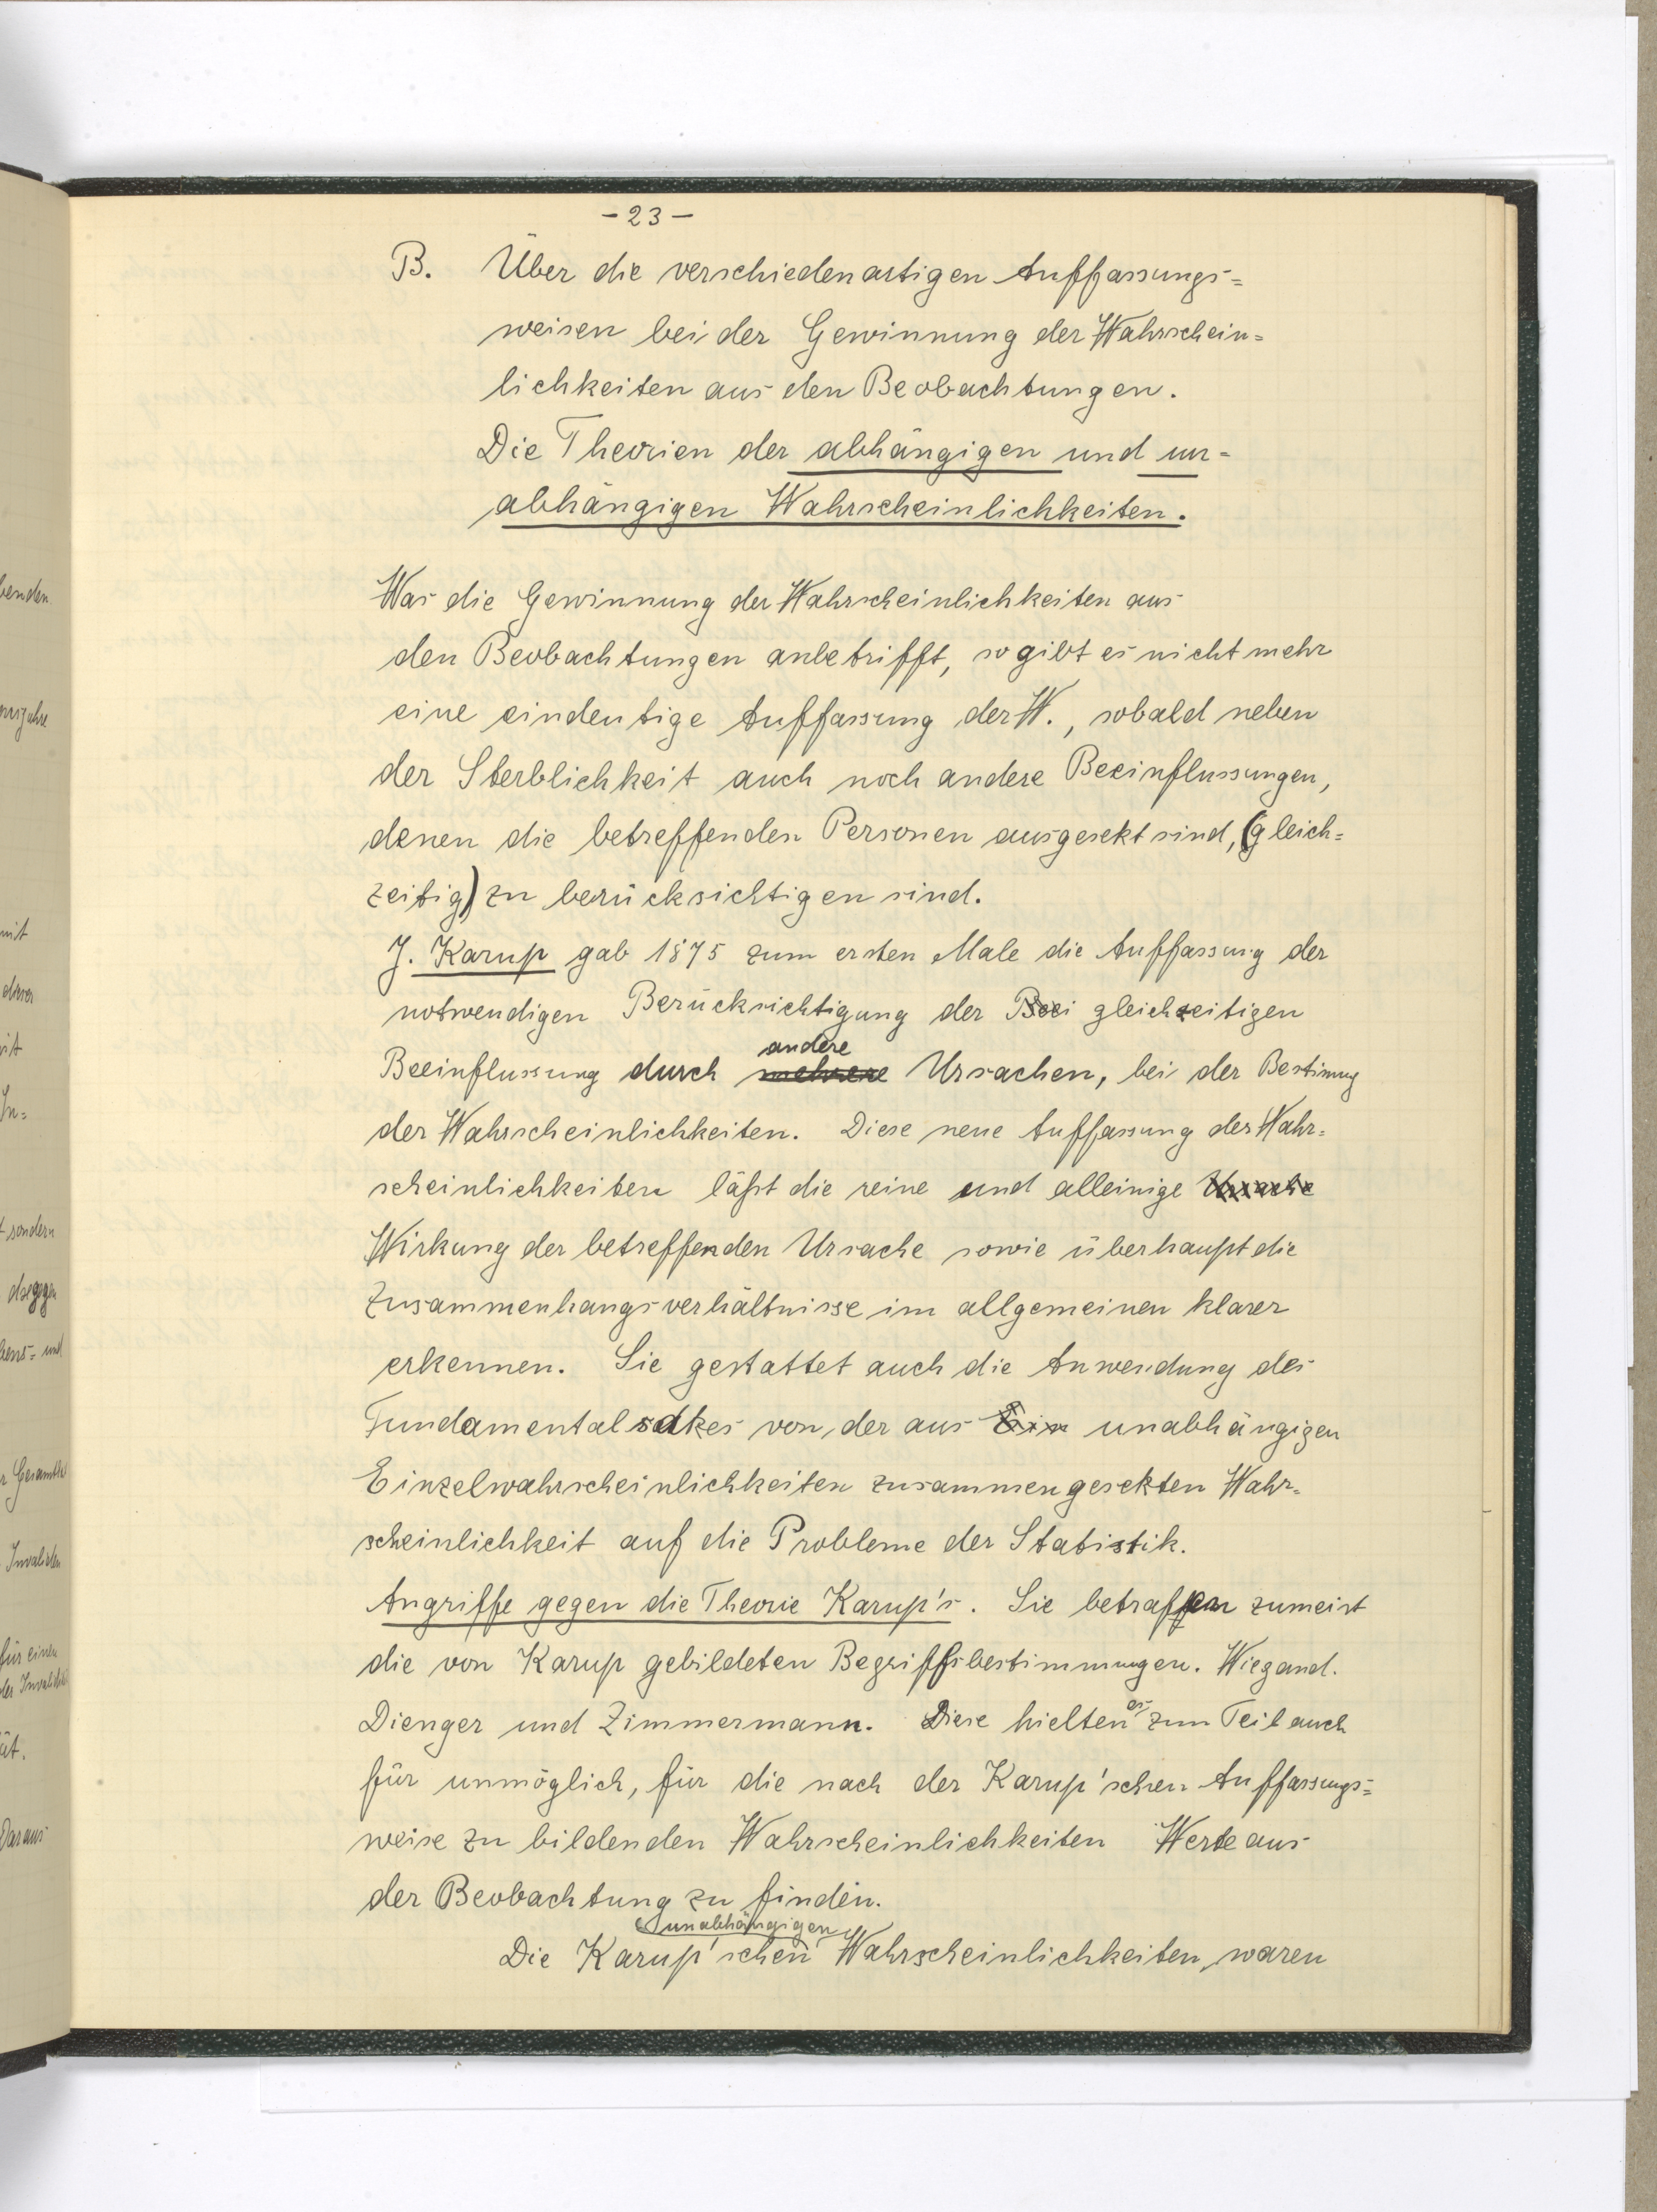 - 23 -
B. Über die verschiedenartigen Auffassungs=
weisen bei der Gewinnung der Wahrschein=
lichkeiten aus den Beobachtungen.
Die Theorien der abhängigen und un=
abhängigen Wahrscheinlichkeiten.
Was die Gewinnung der Wahrscheinlichkeiten aus
den Beobachtungen anbetrifft, so gibt es nicht mehr
eine eindeutige Auffassung der W., sobald neben
der Sterblichkeit auch noch andere Beeinflussungen,
denen die betreffenden Personen ausgesetzt sind, (gleich=
zeitig) zu berücksichtigen sind.
J. Karup gab 1875 zum ersten Male die Auffassung der
notwendigen Berücksichtigung der Beei gleichzeitigen
andere
Beeinflussung durch mehrere Ursachen, bei der Bestimung
der Wahrscheinlichkeiten. Diese neue Auffassung der Wahr=
scheinlichkeiten läßt die reine und alleinige Ursache
Wirkung der betreffenden Ursache sowie überhaupt die
Zusammenhangsverhältnisse im allgemeinen klarer
erkennen. Sie gestattet auch die Anwendung des
Fundamentalsatzes von der aus Ein unabhängigen
Einzelwahrscheinlichkeiten zusammengesetzten Wahr=
scheinlichkeit auf die Probleme der Statistik.
Angriffe gegen die Theorie Karup's. Sie betraffen zumeist
die von Karup gebildeten Begriffsbestimmungen. Wiegand.
Dienger und Zimmermann. Diese hielten es zum Teil auch
für unmöglich, für die nach der Karup'schen Auffassungs=
weise zu bildenden Wahrscheinlichkeiten Werte aus
der Beobachtung zu finden.
unabhängigen
Die Karup'schen Wahrscheinlichkeiten waren
benden
mit
dieser
In=
t sondern
dagegen
bens= und
r Gesamtheit
Invaliden
für einen
der Invalidität
ät.
Daraus